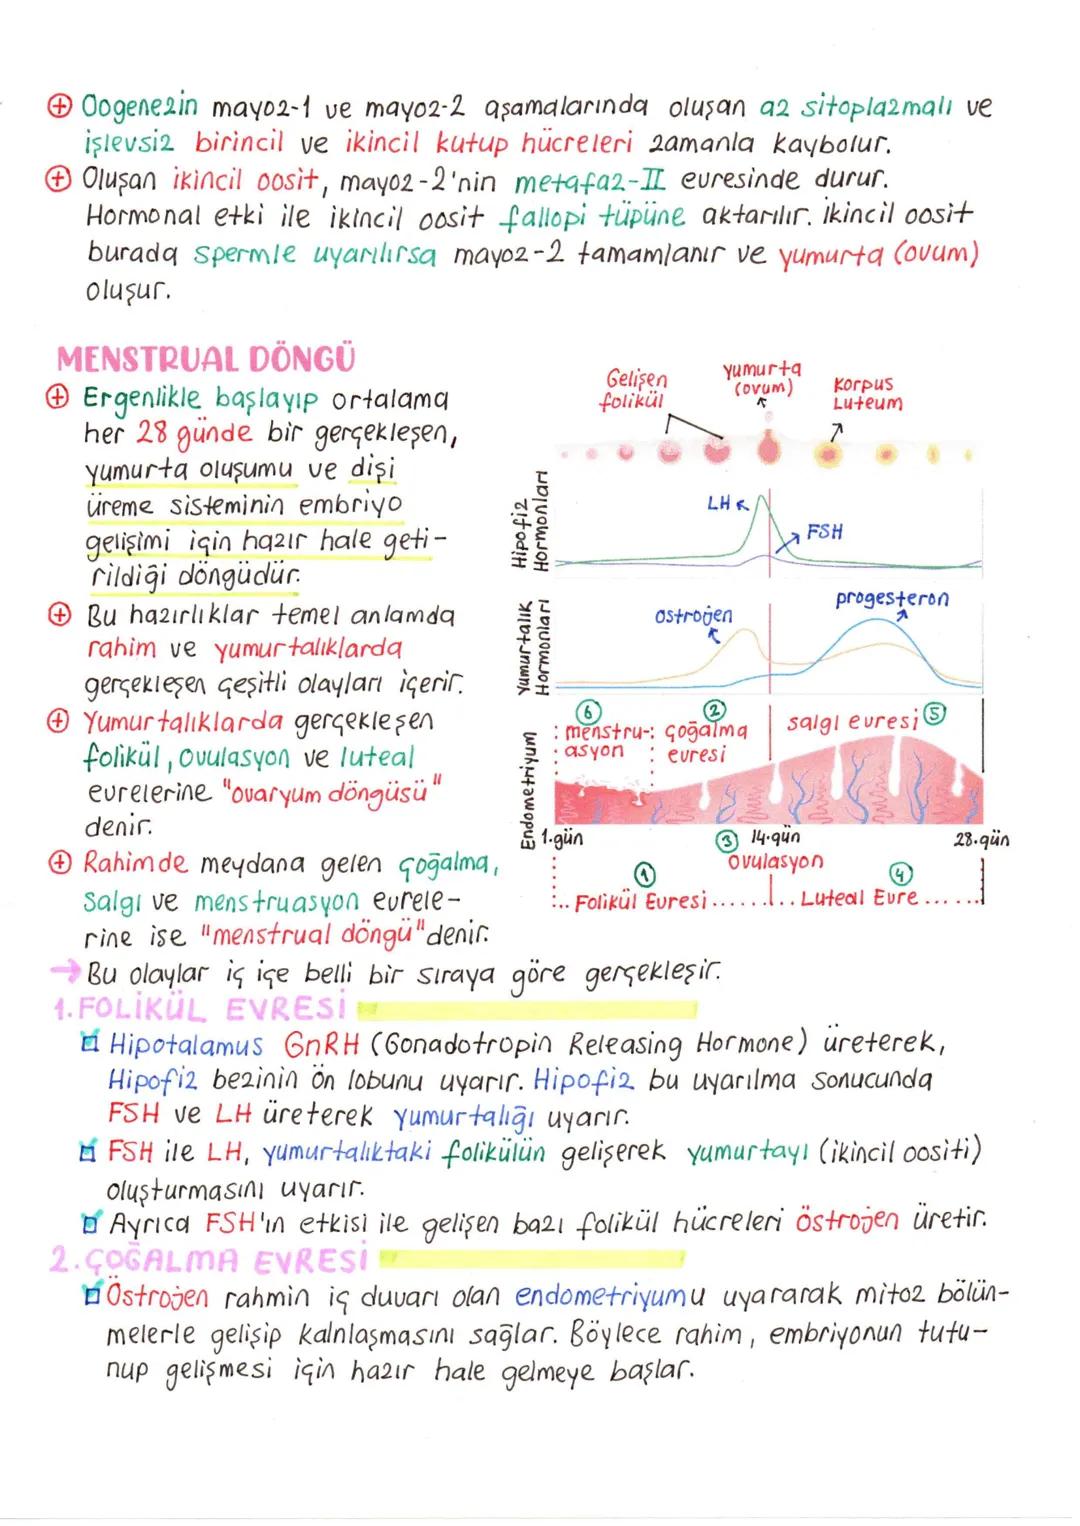 Oogenezin mayoz-1 ve mayoz-2 aşamalarında oluşan az sitoplazmalı ve
işlevsiz birincil ve ikincil kutup hücreleri zamanla kaybolur.
Oluşan ikincil oosit, mayoz-2'nin metafaz-II evresinde durur.
Hormonal etki ile ikincil oosit fallopi tüpüne aktarılır. ikincil oosit
burada spermle uyarılırsa mayoz-2 tamamlanır ve yumurta (ovum)
oluşur.
MENSTRUAL DÖNGÜ
Ergenlikle başlayıp ortalama
her 28 günde bir gerçekleşen,
yumurta oluşumu ve dişi
üreme sisteminin embriyo
gelişimi için hazır hale geti-
rildiği döngüdür.
Bu hazırlıklar temel anlamda
rahim ve yumurtalıklarda
gerçekleşen çeşitli olayları içerir.
Yumurtalıklarda gerçekleşen
folikül, ovulasyon ve luteal
evrelerine "ovaryum döngüsü"
denir.
Rahimde meydana gelen çoğalma,
salgı ve menstruasyon evrele-
rine ise "menstrual döngü" denir.
Gelişen
folikül
yumurta
(ovum)
Korpus
Luteum
Hipofiz
Hormonları
LH
FSH
Yumurtalık
Hormonları
östrojen
progesteron
Endometriyum
6
menstru-
asyon
2
çoğalma
evresi
salgı evresi 5
1.gün
3 14.gün
ovulasyon
28.gün
1
Folikül Evresi
4
Luteal Evre
→ Bu olaylar iç içe belli bir sıraya göre gerçekleşir.
1. FOLİKÜL EVRESİ
Hipotalamus GnRH (Gonadotropin Releasing Hormone) üreterek,
Hipofiz bezinin ön lobunu uyarır. Hipofiz bu uyarılma sonucunda
FSH ve LH üreterek yumurtalığı uyarır.
FSH ile LH, yumurtalıktaki folikülün gelişerek yumurtayı (ikincil oositi)
oluşturmasını uyarır.
Ayrıca FSH'ın etkisi ile gelişen bazı folikül hücreleri östrojen üretir.
2. ÇOĞALMA EVRESİ
Östrojen rahmin iç duvarı olan endometriyumu uyararak mitoz bölün-
melerle gelişip kalınlaşmasını sağlar. Böylece rahim, embriyonun tutu-
nup gelişmesi için hazır hale gelmeye başlar.